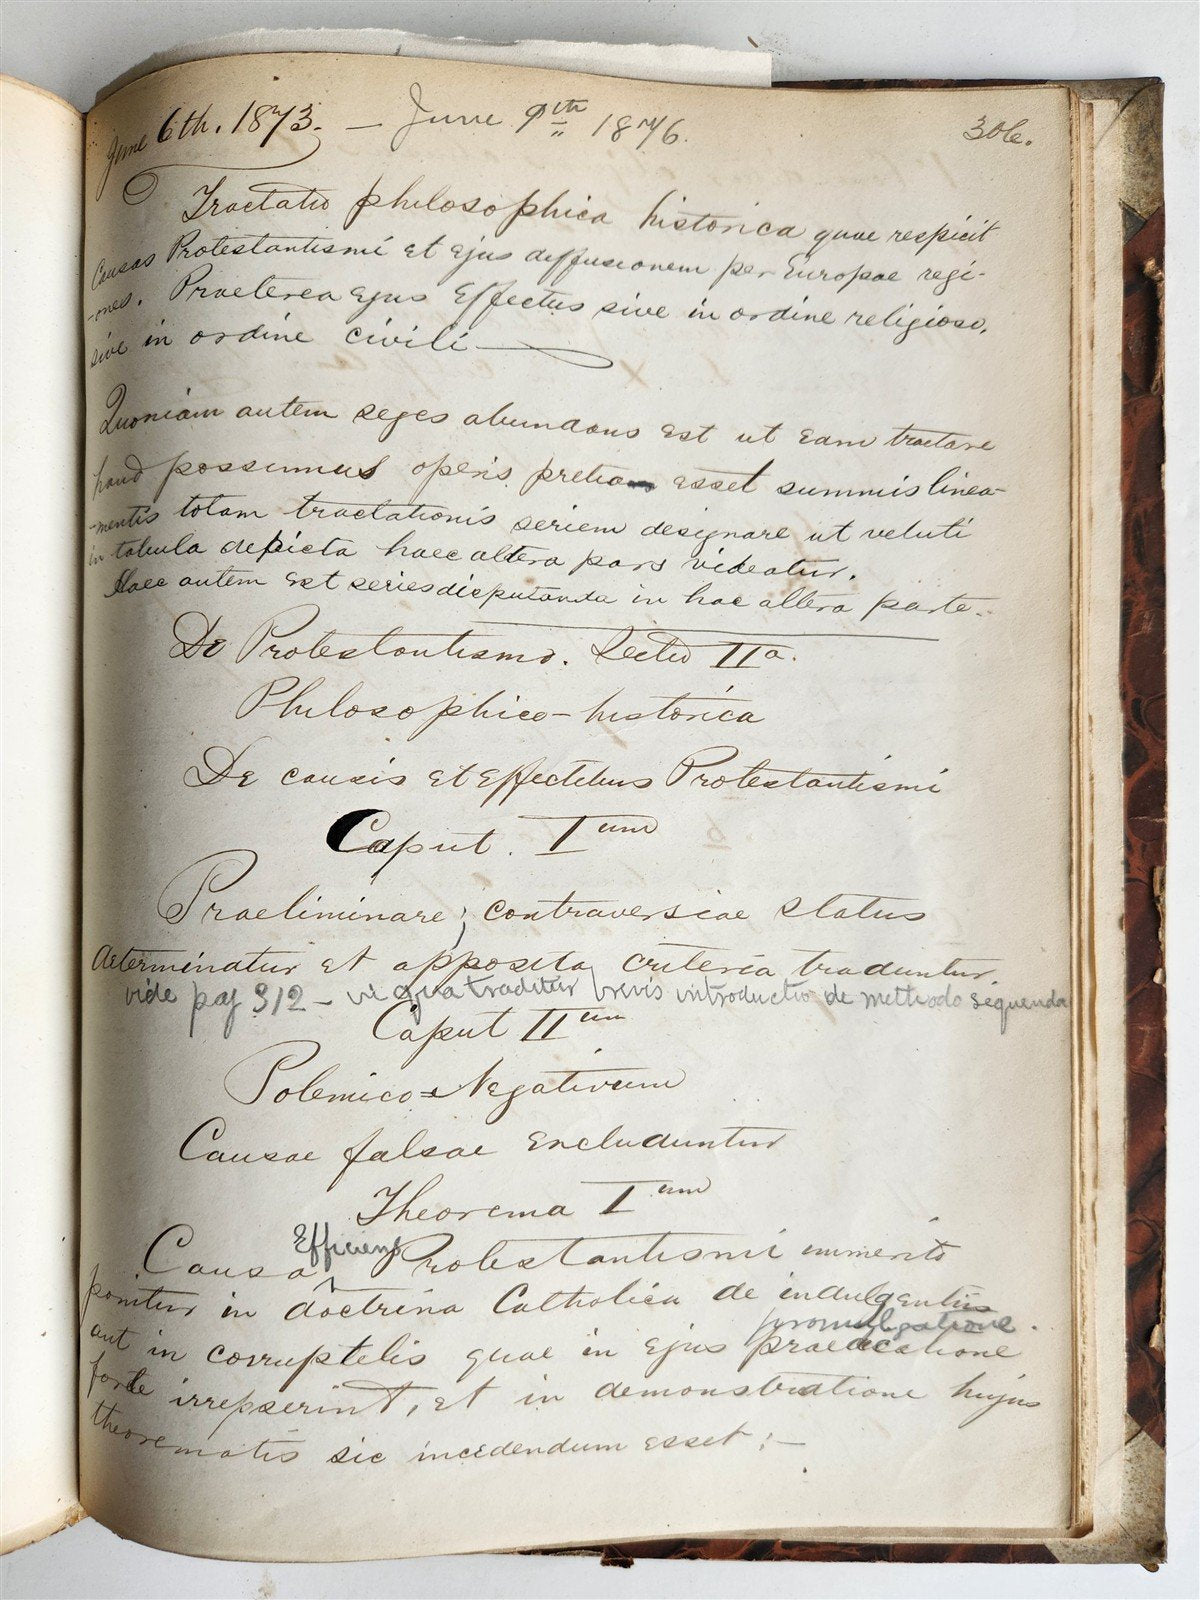 June 6th. 1873. — June 9th 1876.
306.
Tractatio philosophica historica quae respicit
Causas Protestantismi et ejus diffusionem per Europae regi-
-ones. Praeterea ejus effectus sive in ordine religioso,
sive in ordine civili —
Quoniam autem seges abundans est ut eam tractare
haud possumus operis pretium esset summis linea-
-mentis totam tractationis seriem designare ut veluti
in tabula depicta haec altera pars videatur.
Haec autem est series disputanda in hac altera parte.
De Protestantismo. Sectio IIa.
Philosophico-historica
De causis et effectibus Protestantismi
Caput. Ium
Praeliminare; contraversiae status
determinatur et apposita criteria traduntur
vide pag 312 – in qua traditur brevis introductio de methodo sequenda
Caput IIum
Polemico=Negativum
Causae falsae excluduntur
Theorema Ium
Causa Efficiens Protestantismi immerito
ponitur in doctrina Catholica de indulgentiis
promulgatione.
aut in corruptelis quae in ejus praedicatione
forte irrepserint, et in demonstratione hujus
theorematis sic incedendum esset:—